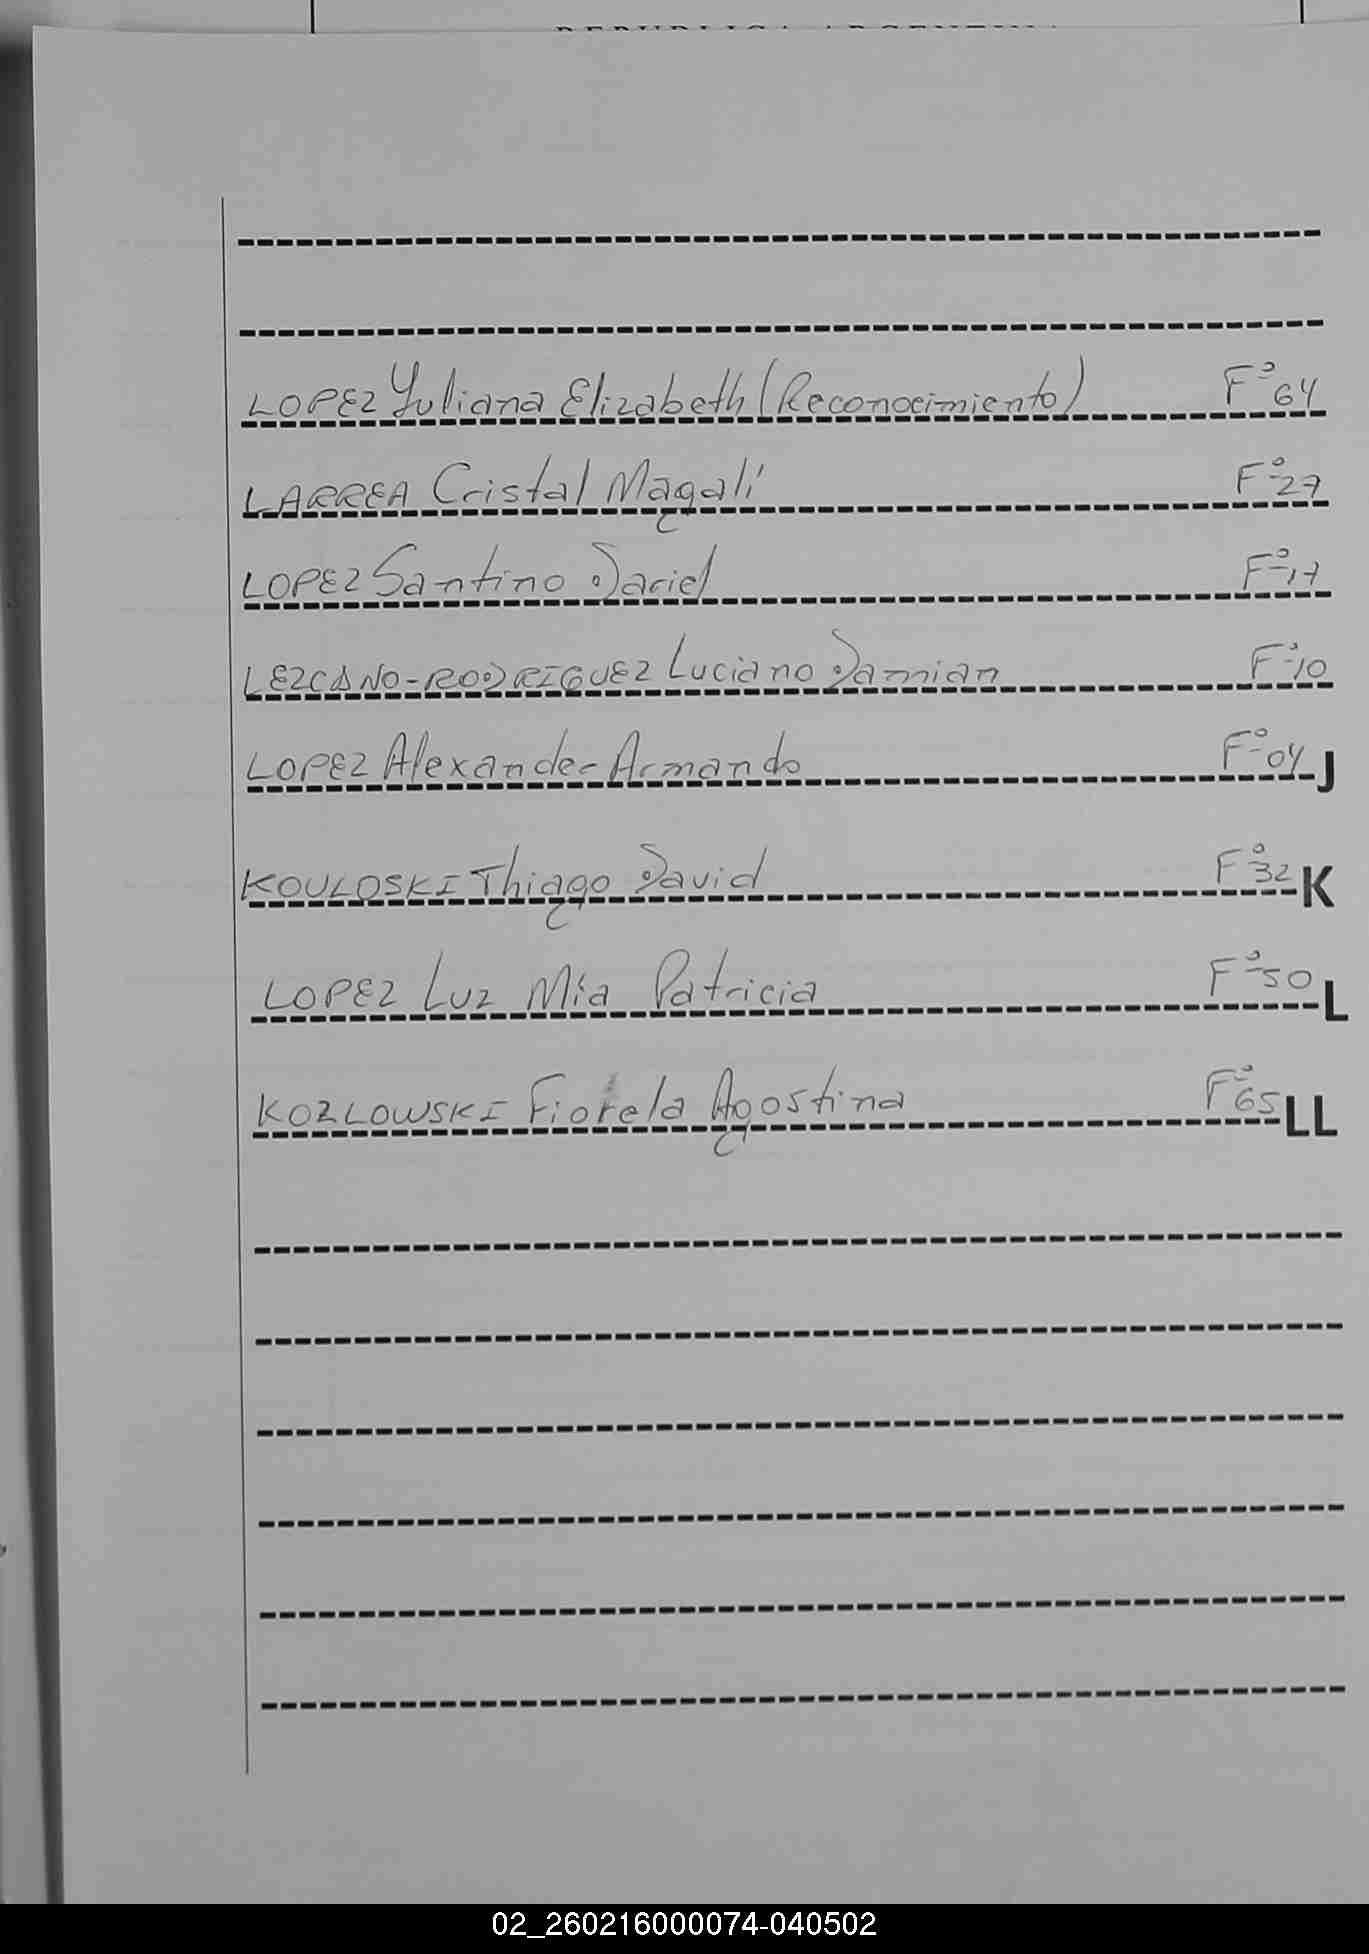 REPUBLICA ARGENTINA
LOPEZ Yuliana Elizabeth (Reconocimiento) Fº 64
LARREA Cristal Magalí Fº 27
LOPEZ Santino Dariel Fº 17
LEZCANO-RODRIGUEZ Luciano Damian Fº 10
LOPEZ Alexander Armando Fº 04 J
KOULOSKI Thiago David Fº 32 K
LOPEZ Luz Mía Patricia Fº 50 L
KOZLOWSKI Fiorela Agostina Fº 65 LL
02_260216000074-040502